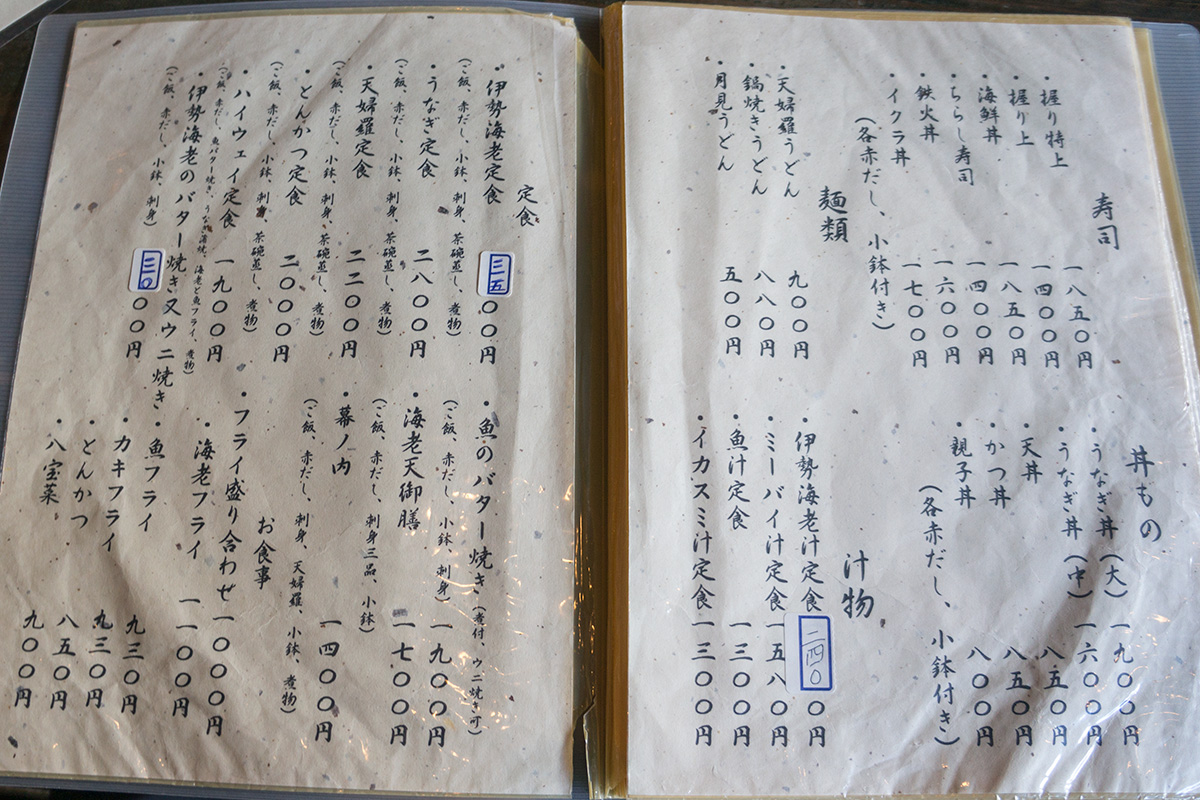 寿司
・握り特上 一八五〇円
・握り上 一四〇〇円
・海鮮丼 一八五〇円
・ちらし寿司 一四〇〇円
・鉄火丼 一六〇〇円
・イクラ丼 一七〇〇円
(各赤だし、小鉢付き)
麺類
・天婦羅うどん 九〇〇円
・鍋焼きうどん 八八〇円
・月見うどん 五〇〇円
丼もの
・うなぎ丼(大) 一九〇〇円
・うなぎ丼(中) 一六〇〇円
・天丼 八五〇円
・かつ丼 八五〇円
・親子丼 八〇〇円
(各赤だし、小鉢付き)
汁物
・伊勢海老汁定食 二四〇〇円
・ミーバイ汁定食 一五八〇円
・魚汁定食 一三〇〇円
・イカスミ汁定食 一三〇〇円
定食
・伊勢海老定食 三五〇〇円
(ご飯、赤だし、小鉢、刺身、茶碗蒸し、煮物)
・うなぎ定食 二八〇〇円
(ご飯、赤だし、小鉢、刺身、茶碗蒸し、煮物)
・天婦羅定食 二二〇〇円
(ご飯、赤だし、小鉢、刺身、茶碗蒸し、煮物)
・とんかつ定食 二〇〇〇円
(ご飯、赤だし、小鉢、刺身、茶碗蒸し、煮物)
・ハイウェイ定食 一九〇〇円
(ご飯、赤だし、魚バター焼き、うなぎ蒲焼、海老と魚フライ、煮物)
・伊勢海老のバター焼き又ウニ焼き 三〇〇〇円
(ご飯、赤だし、小鉢、刺身)
・魚のバター焼き(煮付、ウニ焼き可) 一九〇〇円
(ご飯、赤だし、小鉢、刺身)
・海老天御膳 一七〇〇円
(ご飯、赤だし、刺身三品、小鉢)
・幕ノ内 一四〇〇円
(ご飯、赤だし、刺身、天婦羅、小鉢、煮物)
お食事
・フライ盛り合わせ 一〇〇〇円
・海老フライ 一一〇〇円
・魚フライ 九三〇円
・カキフライ 九三〇円
・とんかつ 八五〇円
・八宝菜 九〇〇円